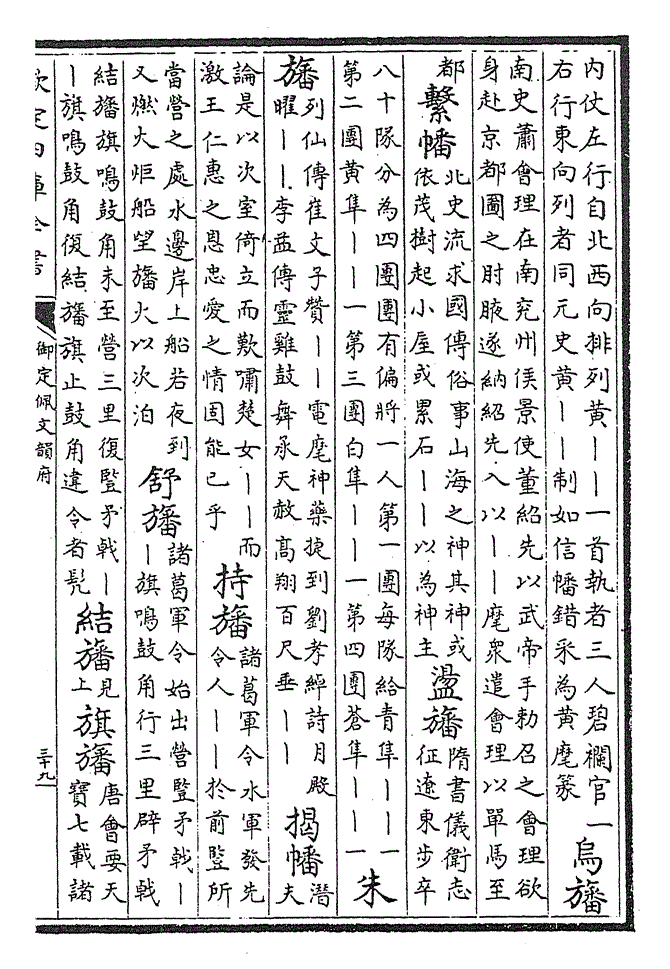 内仗左行自北西向排列黄丨丨一首執者三人碧襴官一
右行東向列者同元史黄丨丨制如信幡錯采為黄麾篆
烏旛
南史蕭會理在南兖州侯景使董紹先以武帝手勅召之會理欲
身赴京都圖之肘腋遂納紹先入以丨丨麾衆遣會理以單馬至
都
繫幡
北史流求國傳俗事山海之神其神或
依茂樹起小屋或累石丨丨以為神主
盪旛
隋書儀衛志
征遼東步卒
八十隊分為四團團有偏將一人第一團每隊給青隼丨丨一
第二團黄隼丨丨一第三團白隼丨丨一第四團蒼隼丨丨一
朱
旛
列仙傳崔文子贊丨丨電麾神藥捷到劉孝綽詩月殿
曜丨丨李益傳靈雞鼓舞承天赦髙翔百尺垂丨丨
揭幡
潛
夫
論是以次室倚立而歎嘯楚女丨丨而
激王仁惠之恩忠愛之情固能已乎
持旛
諸葛軍令水軍發先
令人丨丨於前竪所
當營之處水邊岸上船若夜到
又燃火炬船望旛火以次泊
舒旛
諸葛軍令始出營竪矛戟丨
丨旗鳴鼓角行三里辟矛戟
結旛旗鳴鼓角未至營三里復竪矛戟丨
丨旗鳴鼓角復結旛旗止鼓角違令者髠
結旛
見
上
旗旛
唐會要天
寶七載諸
欽定四庫全書
御定佩文韻府
三十九